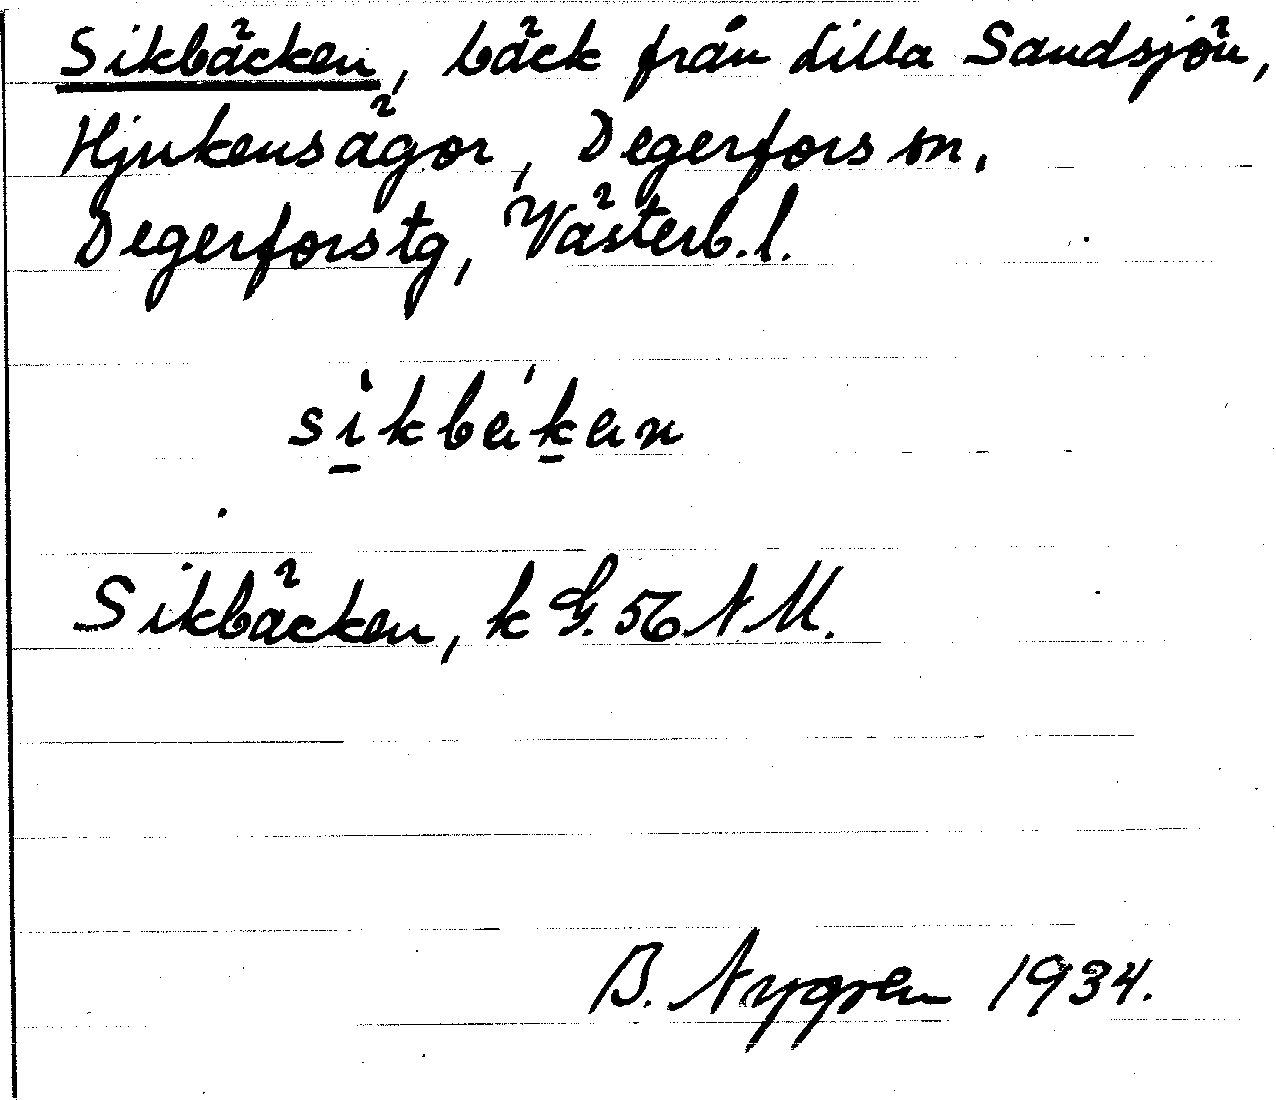 Sikbäcken, bäck från Lilla Sandsjön,
Hjukensägor, Degerfors sn,
Degerfors tg, Västerb. l.
sìkbe´ken
Sikbäcken, k G. 56 NM.
B. Nygren 1934.